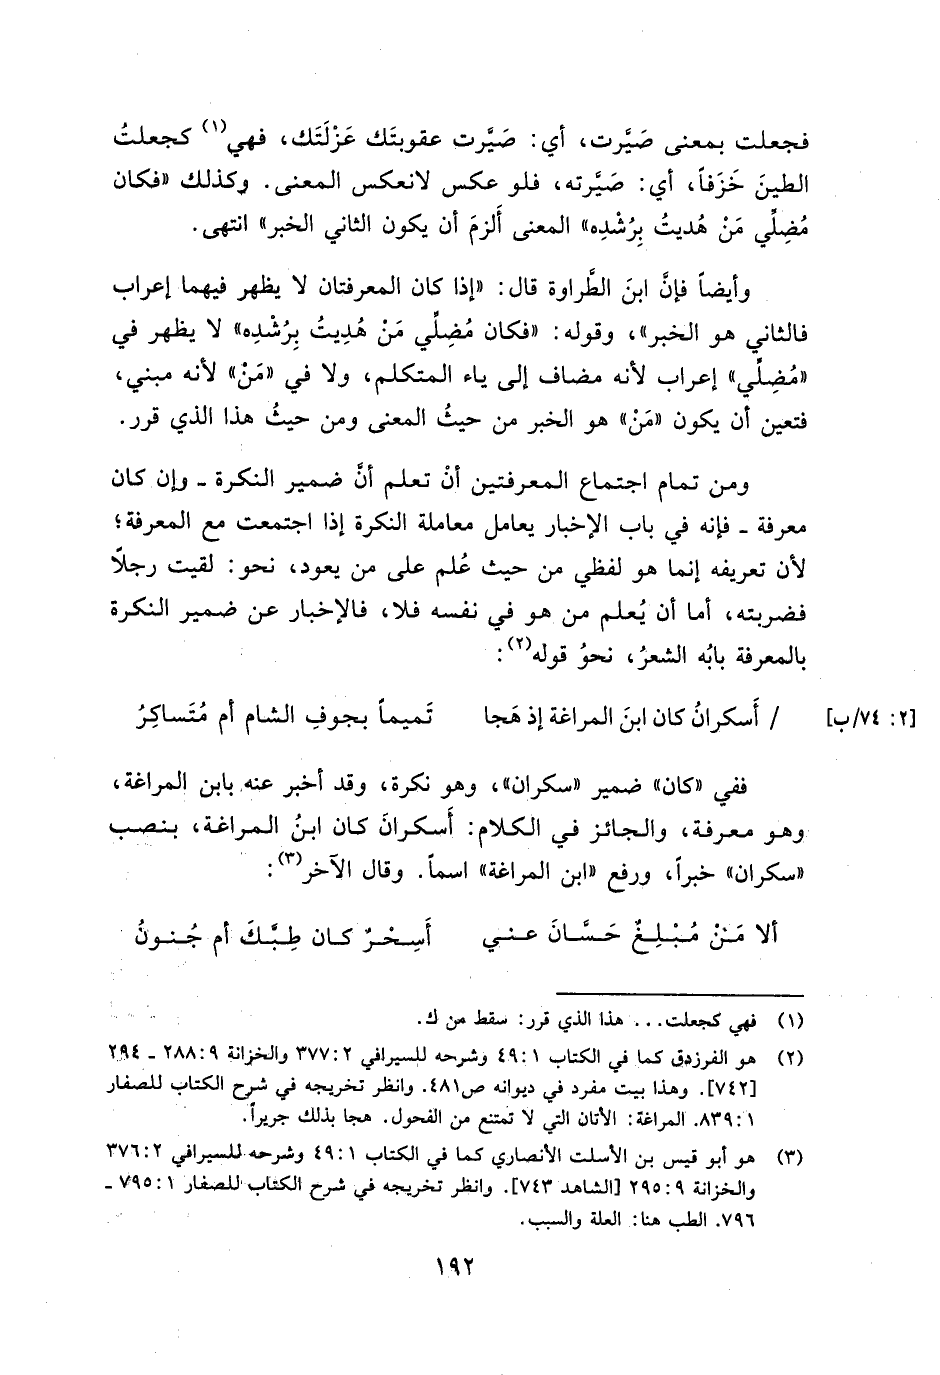 فجعلت بمعنى صَيَّرت، أي: صَيَّرت عقوبتَك عَزْلَتَك، فهي(١) كجعلتُ
الطينَ خَزَفاً، أي: صَيَّرته، فلو عكس لانعكس المعنى. وكذلك «فكان
مُضِلِّي مَنْ هُديتُ بِرُشْدِه» المعنى أَلزمَ أن يكون الثاني الخبر» انتهى.
وأيضاً فإنَّ ابنَ الطَّراوة قال: «إذا كان المعرفتان لا يظهر فيهما إعراب
فالثاني هو الخبر»، وقوله: «فكان مُضِلِّي مَنْ هُدِيتُ بِرُشْدِه» لا يظهر في
«مُضِلِّي» إعراب لأنه مضاف إلى ياء المتكلم، ولا في «مَنْ» لأنه مبني،
فتعين أن يكون «مَنْ» هو الخبر من حيثُ المعنى ومن حيثُ هذا الذي قرر.
ومن تمام اجتماع المعرفتين أنْ تعلم أنَّ ضمير النكرة ـ وإن كان
معرفة ـ فإنه في باب الإخبار يعامل معاملة النكرة إذا اجتمعت مع المعرفة؛
لأن تعريفه إنما هو لفظي من حيث عُلم على من يعود، نحو: لقيت رجلاً
فضربته، أما أن يُعلم من هو في نفسه فلا، فالإخبار عن ضمير النكرة
بالمعرفة بابُه الشعرُ، نحوُ قوله(٢):
[٢: ٧٤/ب] / أَسكرانُ كان ابنَ المراغة إذ هَجا تَميماً بجوفِ الشام أم مُتَساكِرُ
ففي «كان» ضمير «سكران»، وهو نكرة، وقد أخبر عنه بابن المراغة،
وهو معرفة، والجائز في الكلام: أَسكرانَ كان ابنُ المراغة، بنصب
«سكران» خبراً، ورفع «ابن المراغة» اسماً. وقال الآخر(٣):
ألا مَنْ مُبْلِغٌ حَسَّانَ عني أَسِحْرٌ كان طِبَّكَ أم جُنونُ
(١) فهي كجعلت... هذا الذي قرر: سقط من ك.
(٢) هو الفرزدق كما في الكتاب ١: ٤٩ وشرحه للسيرافي ٢: ٣٧٧ والخزانة ٩: ٢٨٨ ـ ٢٩٤
[٧٤٢]. وهذا بيت مفرد في ديوانه ص٤٨١. وانظر تخريجه في شرح الكتاب للصفار
١: ٨٣٩. المراغة: الأتان التي لا تمتنع من الفحول. هجا بذلك جريراً.
(٣) هو أبو قيس بن الأسلت الأنصاري كما في الكتاب ١: ٤٩ وشرحه للسيرافي ٢: ٣٧٦
والخزانة ٩: ٢٩٥ [الشاهد ٧٤٣]. وانظر تخريجه في شرح الكتاب للصفار ١: ٧٩٥ ـ
٧٩٦. الطب هنا: العلة والسبب.
١٩٢